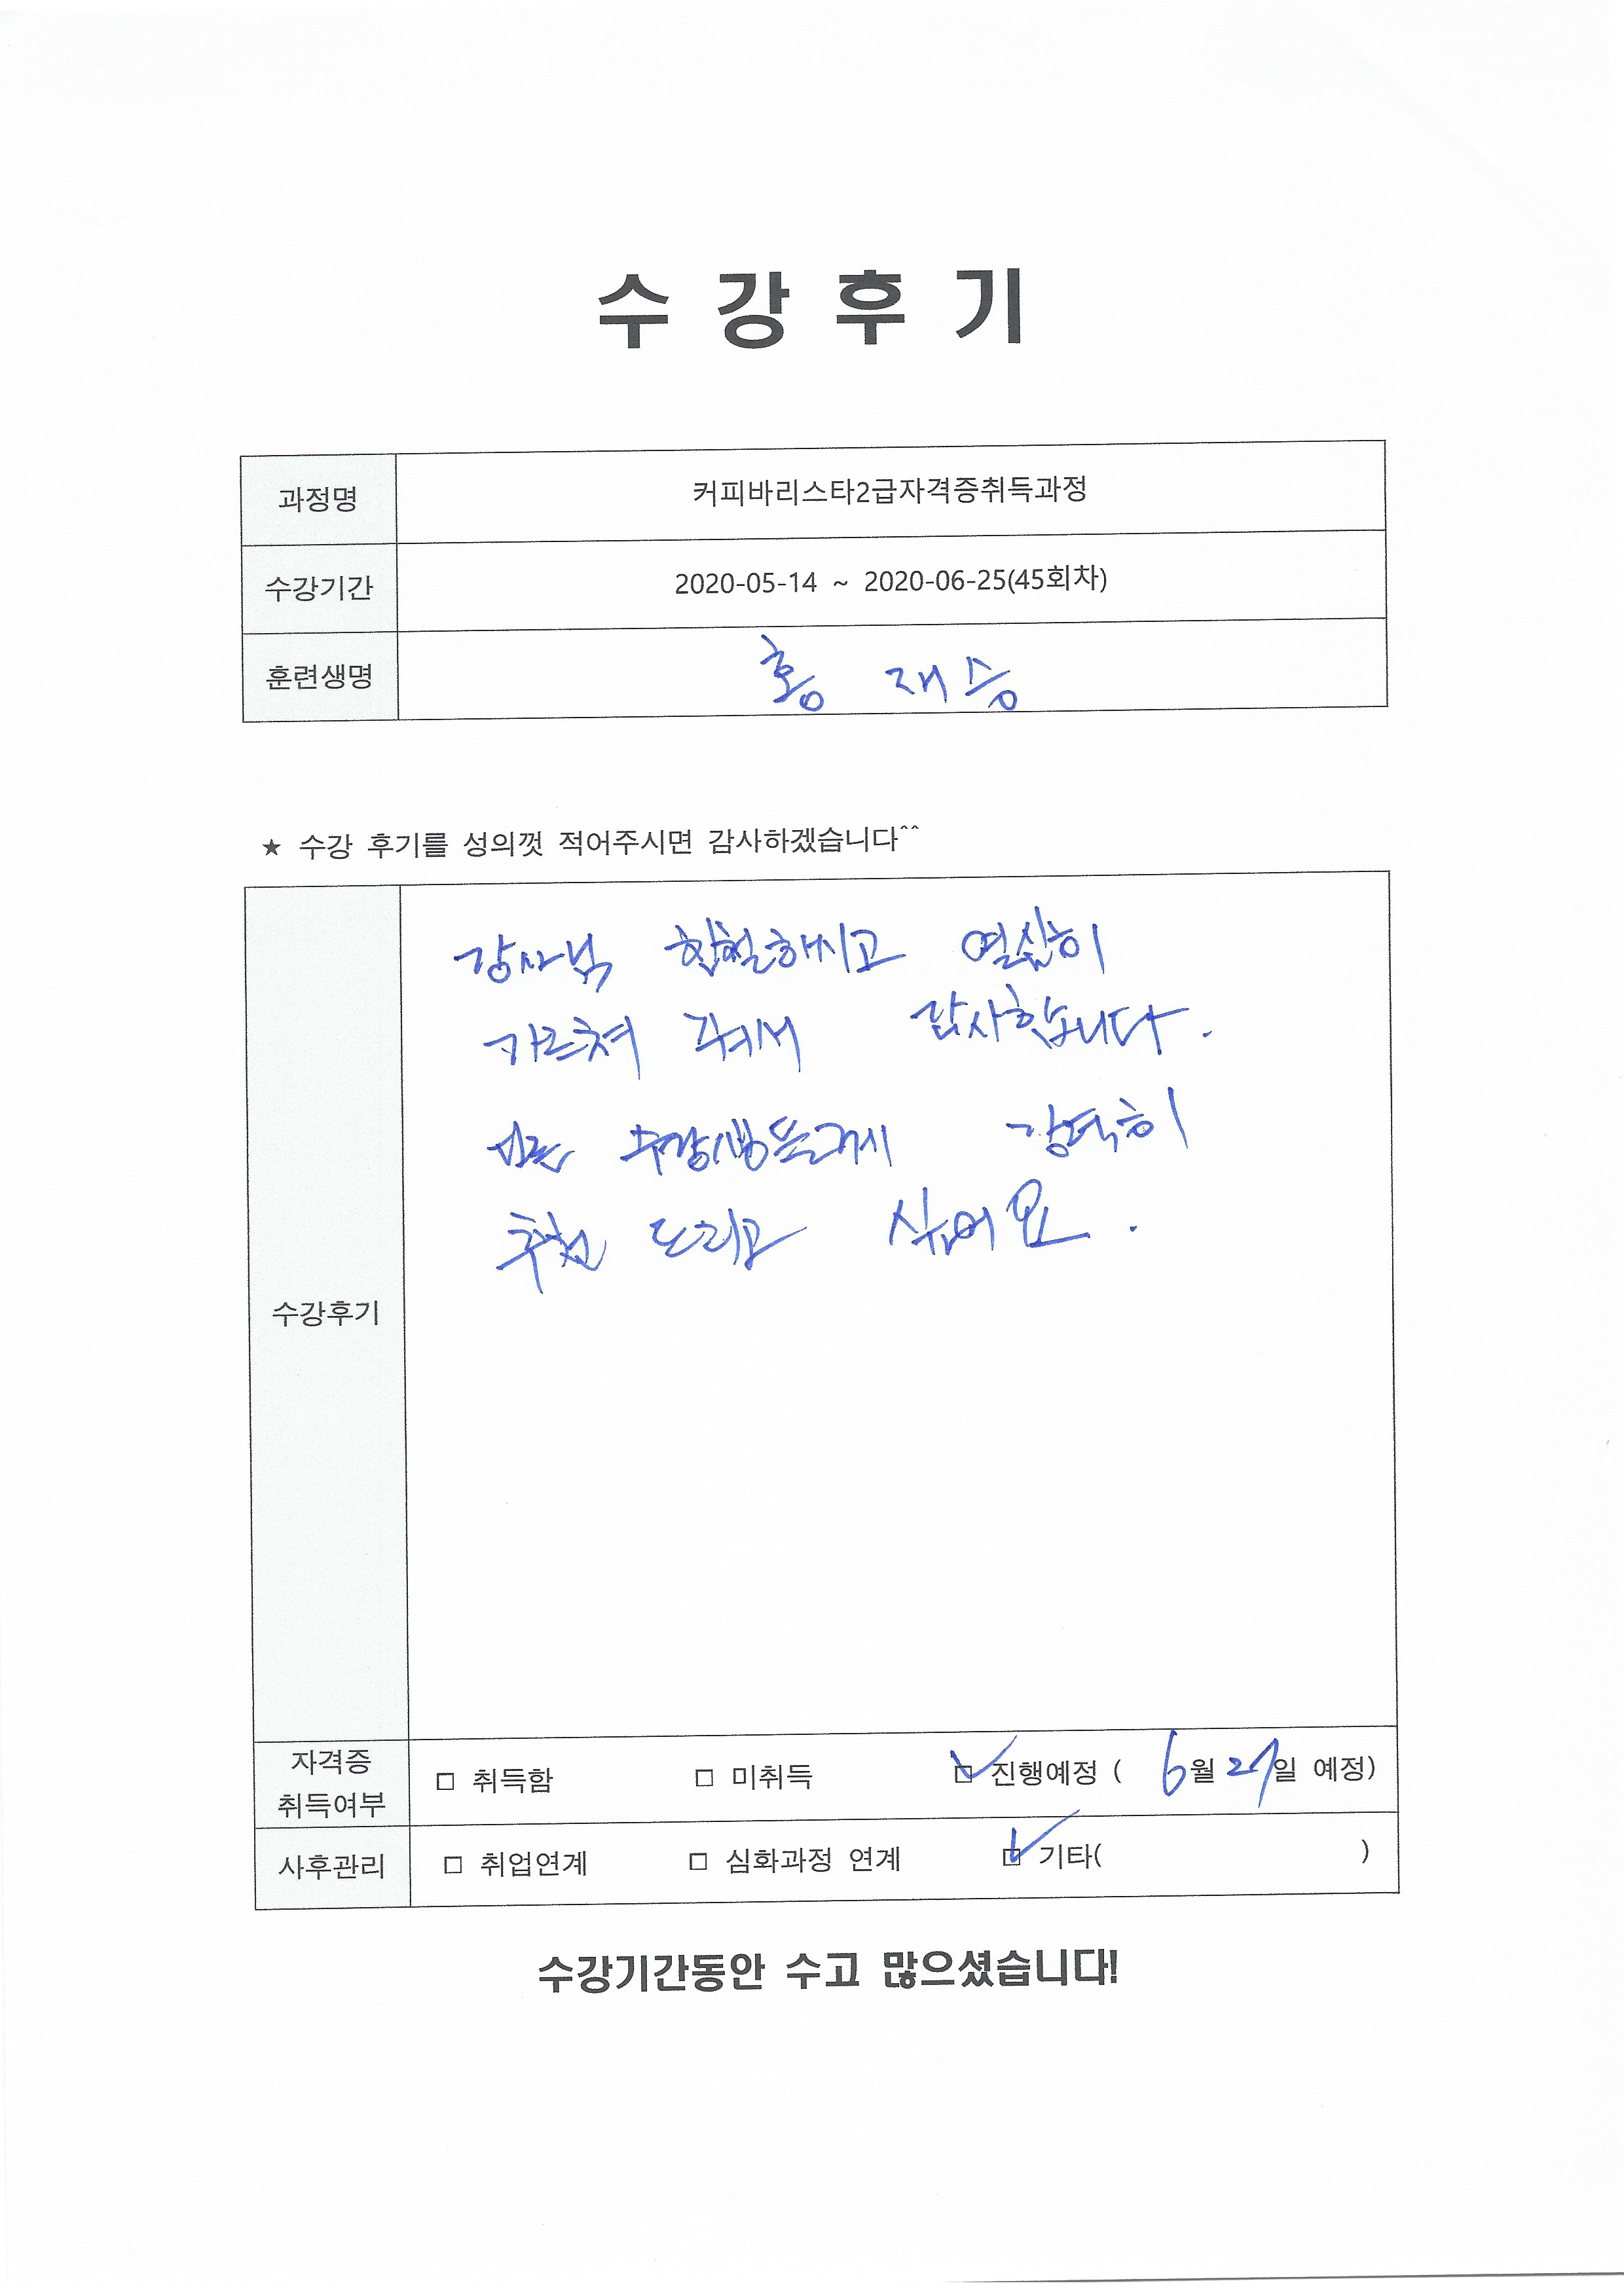 수 강 후 기
과정명 커피바리스타2급자격증취득과정
수강기간 2020-05-14 ~ 2020-06-25(45회차)
훈련생명 홍 재승
★ 수강 후기를 성의껏 적어주시면 감사하겠습니다^^
수강후기
강사님 친절해시고 열심히
가르쳐 줘서 감사합니다.
수강생들게 강력히
추천 드리고 싶어요.
자격증 취득여부 □ 취득함 □ 미취득 ☑ 진행예정 ( 6월 27일 예정)
사후관리 □ 취업연계 □ 심화과정 연계 ☑ 기타( )
수강기간동안 수고 많으셨습니다!